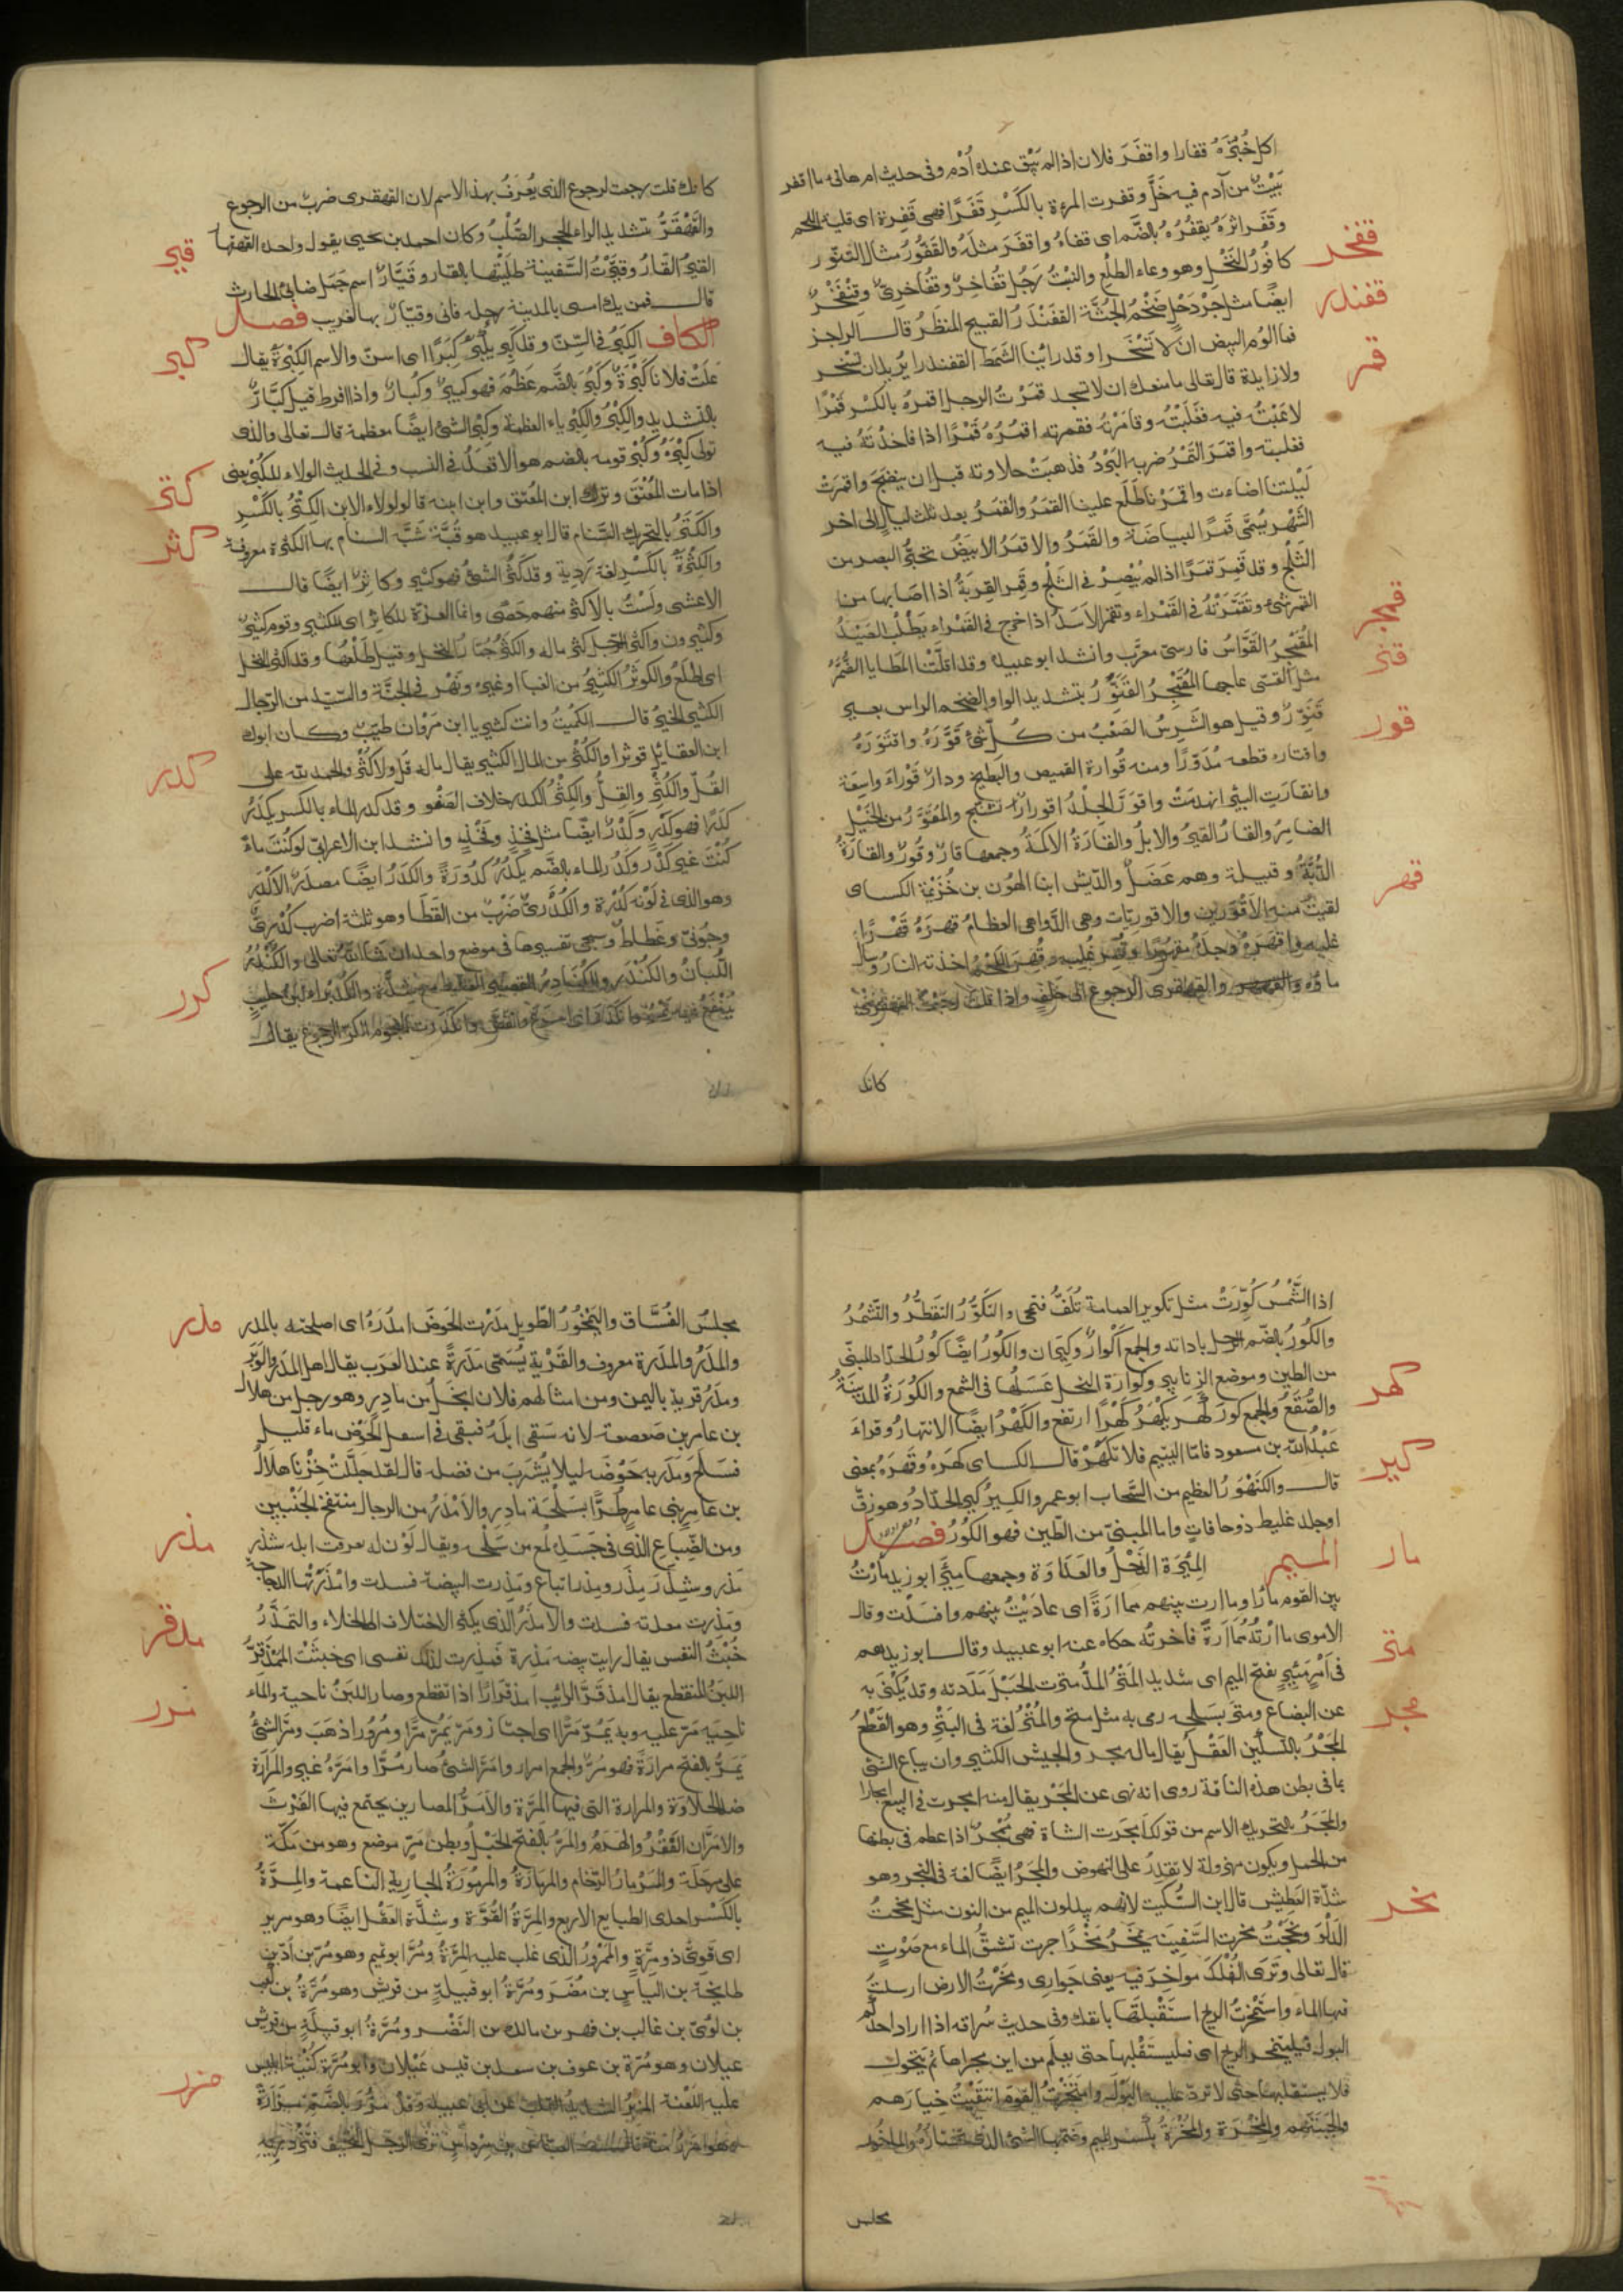 اكل خُبْزَهُ قفارا واقفَرَ فلان اذا لم يَبْقَ عنده أُدْم وفى حديث ام هانى ما اقفر
بَيْتٌ من آدم فيه خَلٌّ وقفرت المرءة بالكَسْرِ قَفَرًا فهى قَفِرة اى قليلة اللحم
وقَفَر اثرَهُ يقفُرُهُ بالضّم اى قفاهُ واقفَرَ مثلَهُ والقَفُّورُ مثال التنّور
كافُورُ النَّخْل وهو وعاء الطلْع والنبْتُ رَجُل قُفَاخِرٌ وقُفَاخرىٌّ وقِنْفَخْرٌ
قفخر
ايضًا مثل جِرْدَحْلٍ ضَخْمُ الجُثَّة القَفَنْدَرُ القبيح المنظَرُ قال الراجز
قفندر
فما الوم البيض ان لا تَسْخَرا وقد راينا الشَمَط القفندرا يُريدان تسخر
ولا زايدة قال تعالى ما منعك ان لا تسجد قمرْتُ الرجل اقمِرهُ بالكسْرِ قَمْرًا
قمر
لاعَبْتُه فيه فغَلَبْتُه وقامَرْتُه فقمرته اقمُرُهُ قَمْرًا اذا فاخذْتَهُ فيه
فغلبته واقمَرَ التَمْرُ ضربه البَرْدُ فذهبَتْ حلاوته قبل ان ينضَجَ واقمرَتْ
لَيْلتنا اضاءت واقمَرْنا طَلَع علينا القمَرُ والقمَرُ بعد ثلث ليالٍ الى اخر
الشَهْر يُسَمَّى قَمَرًا لبياضَة والقَمَرُ والاقمَرُ الابيَضُ تحيُّر البصر من
الثَلْج وقد قَمِرَ قمَرًا اذا لم يُبْصِرْ فى الثَلْج وقَمِرَ القِرْبَةُ اذا اصَابها من
القمر شئ وتقَمَّرْتُهُ فى القَمْراء وتقمَّر الاسَدُ اذا خرج فى القمْراء يطْلُبُ الصَيْدَ
المُقَمْجِرُ القَوَّاسُ فارسىّ معرَّب وانشد ابو عبيدة وقد اقلَّتْنا المطايا الضُمَّرُ
قمجر
مثل القسّى عاجها المُقَمْجِرُ القَنَوَّرُ بتشديد الواو الضخم الراس بعير
قنر
قنوّرٌ وقيل هو الشَرِسُ الصَعْبُ من كُلّ شئ قَوَّرَهُ واقتَوَرَهُ
قور
واقتاره قطعه مُدَوَّرًا ومنه قُوارة القميص والبَطيخ ودارٌ قَوْراءُ واسِعَة
وانقارَتِ البئر انهدمَتْ واقوَرَّ الجِلْدُ اقورارًا تشنَّج والمُقوَرَّ من الخَيْل
الضامِرُ والقارُ القيرُ والابلُ والقَارَةُ الاكمَةُ وجمعها قارٌ وقُورٌ والقارَةُ
الدُبَّةُ وقبيلة وهم عَضَلٌ والدِيش ابنا الهُون بن خُزَيْمَة الكساى
لقيتُ منه الاقوَرين والاقورِيّات وهى الدّواهى العظامُ قهرَهُ قَهْرًا
قهر
غلبه واقهَرَهُ وجدَهُ مقهورًا وقُهِرَ غُلِبَ وقُهِرَ اللَحْمُ اخذته النارُ وسال
ماؤه والقهقرى الرجوع الى خَلْفٍ واذا قلت رجعْتُ القهقرى
كانك
كانك قلت رجعت لرجوع الذى يُعرَفُ بهذا الاسم لان القهقرى ضربٌ من الرجوع
والقَهْقَرُّ بتشديد الراء الحجر الصُّلْبُ وكان احمد بن يحيى يقول واحده القهقار
القيرُ القَارُ وقيّرْتُ السَّفينة طَلَيْتُها بالقار وقَيَّارٌ اسم جَمَل ضابئ الحارث
قير
قال فمن يك امسى بالمدينة رحله فانى وقيّارٌ بها لغريب فصل
الكاف الكِبَرُ فى السِّنّ وقد كَبِرَ يكبَرُ كِبَرًا اى اسنّ والاسم الكَبْرَةُ يقال
كبر
عَلَتْ فلانا كَبْرَةٌ وكَبُرَ بالضَّم عَظُمَ فهو كبيرٌ وكُبارٌ واذا افرط قيل كُبَّارٌ
بالتشديد والكِبْرُ والكِبْرِياء العظمة وكِبْرُ الشئ ايضًا معظمه قال تعالى والذى
تولى كِبْرَهُ وكُبْرُ قومه بالضم هو الاقعَدُ فى النسب وفى الحديث الولاء للكُبْرِ يعنى
اذا مات المُعْتَق وترك ابن المُعتق وابن ابنه قالوا لولاء الابن الكِتْرُ بالكَسْرِ
كتر
والكَتَرُ بالتحريك السَّنام قال ابو عبيد هو قُبَّة شَبَّة السنام بها الكَثْرة معروفة
كثر
والكِثْرَةُ بالكَسْرِ لغة رَديّة وقد كَثُرَ الشئ فهو كثير وكاثرٌ ايضًا قال
الاعشى ولَسْتُ بالاكثر منهم حَصًى وانما العزّة للكاثر اى للكثير وقوم كثيرٌ
وكثيرون واكثر الرّجل كثر ماله والكَثَرُ جُمّارُ النخل وقيل طَلْعُها وقد اكثر النخل
اى اطلَعَ والكوثَرُ الكثِيرُ من الغبار اوغيره ونَهْر فى الجنَّة والسيّد من الرّجال
الكثير الخيرُ قال الكُمَيْتُ وانت كثير يا ابن مَرْوَان طيّبٌ وكان ابوك
ابن العقائِل كوثرا والكُثْرُ من المال الكثير يقال ماله قُلٌ ولا كُثْرٌ والحمد لله على
القُلّ والكُثْرِ والقِلُّ والكِثْرُ الكدر خلاف الصَفْو وقد كدر الماء بالكسر يكدَرُ
كدر
كدَرًا فهو كَدِرٍ وكَدْرٌ ايضًا مثل فخِذٍ وفَخْذٍ وانشد ابن الاعرابّى لو كُنْتَ ماءً
كُنْتَ غير كَدْر وكَدُر الماء بالضَم يكدُرُ كُدُورَةً والكدَرُ ايضًا مصدَر الاكْدَر
وهو الذى فى لَوْنه كُدْرة والكُدْرِىّ ضَرْبٌ من القَطَا وهو ثلثة اضرب كُدْرىّ
وجُونىّ وغَطَاطٌ وسيجى تفسيرها فى موضع واحد ان شاء اللهُ تعالى والكُنْدُرُ
اللُبانُ والكُنْدُر والكُنَادِرُ القصير الغليظ مع شدّة والكُدَيراءُ لبنٌ حليب
يُنقَعُ فيه تمْرٌ وانكدَرَ اى اسرَعَ وانقضَّ وانكدرت النجوم الكَرّ الرجوع يقال
كرر
اذا الشَّمْسُ كُوِّرَتْ مثل تكوير العمامة تُلَفُّ فتمحى والتكَوُّرُ التقطُّرُ والتَشمُّرُ
والكُورُ بالضّم الرحل باداته والجمع اَكْوارٌ وكِيَران والكُورُ ايضًا كُورُ الحدّاد المبنىّ
من الطين وموضع الزنابير وكُوَارة النحل عَسَلُها فى الشمع والكُورَةُ المدينَةُ
والصُّقعُ والجمع كُورٌ كَهَر يَكْهَرُ كَهْرًا ارتفع والكَهْرُ ايضًا الانتهارُ وقراءَ
كهر
عَبْدُ الله بن مسعود فامّا اليتيم فلا تكْهَرْ قال الكساى كهَرَهُ وقَهَرَهُ بمعنى
قال والكَنَهْوَرُ العظيم من السَّحاب ابو عمرو الكِيرُ كير الحدّاد وهو زِقّ
كير
او جلد غليط ذو حافاتٍ واما المبنىّ من الطّين فهو الكُورُ فصل
الميم المِئرَة الذَحْلُ والعَدَاوَة وجمعها مِئَرٌ ابو زيد مأرْتُ
مار
بين القوم مأرًا وماارت بينهم مماارةً اى عاديْتُ بينهم وافسَدْت وقال
الاموى ماارْتُهُ مماارةً فاخرتُه حكاه عنه ابو عبيد وقال ابو زيد هم
فى اَمْرٍ مَئِيرٍ بفتح الميم اى شديد المَتْرُ المدُّ مترت الحَبْلَ مَدَدته وقد يُكْنَى به
متر
عن البضاع ومتَر بسَلْحِه رمى به مثل متح والمَتْرُ لغة فى البَتْرِ وهو القَطْعُ
المَجْرُ بالتسكين العَقْل يقال ماله مجر والجيش الكثير وان يباع الشئ
مجر
بما فى بطن هذه الناقة روى انه نهى عن المَجْر يقال منه امجرت فى البيع امجارا
والمَجَرُ بالتحريك الاسم من قولك امجَرت الشاة فهى مُمْجِرٌ اذا عظم فى بطنها
من الحمل ويكون مهزولة لا يقدِرُ على النهوض والمجَرُ ايضًا لغة فى النجر وهو
شدّة العَطِش قال ابن السّكيت لانهم يبدلون الميم من النون مثل مخجتُ
الدَلْوَ ونخَجْتُ مخرت السَّفِينَة تمخَرُ مَخْرًا جرت تشقُّ الماء مع صَوْتٍ
مخر
قال تعالى وتَرَى الفُلْكَ مواخِرَ فيه يعنى جَوارِى ومخَرْتُ الارض ارسلتُ
فيها الماء واستَمْخرْتُ الريح استقْبلتُها بانفك وفى حديث سُراقة اذا اراد احدكم
البول فليتمخّر الريح اى فليستقْبلها حتى يعلم من اين مجراها ثم يَتحَوّل
فلا يستقبلها حتى لا تردّ عليه البَوْلَ وامتَخَرْتُ القومَ انتقَيْتُ خِيارَهم
ونُخبَتَهم والمِخْرَة والمُخْرَةُ بكسر الميم وضمها الشئ الذى تختارُهُ والماخُورُ
مجلس
مجلسُ الفُسَّاق واليَمْخُورُ الطّويل مدَرْت الحَوضَ امدُرُهُ اى اصلحته بالمدر
مدر
والمدَرُ والمدَرة معروف والقَرْية يُسَمَّى مَدَرَةً عند العرب يقال اهل المدر والوبَر
ومدَرُ قرية باليمن ومن امثالهم فلان ابخَلُ من مادِرٍ وهو رجل من هلال
بن عامر بن صَعصعة لانه سَقَى ابلَهُ فبقى فى اسفل الحَوْض ماء قليل
فسَلَحَ ومدَر به حَوْضَه ليلا يُشرَبَ من فضله قال لقد جلَّلَتْ خِزْيًا هلالُ
بن عَامرٍ بنى عامرٍ طُرًّا بسلْحَة مادِرٍ والاَمْدَرُ من الرجال منتفخ الجنْبين
ومن الضِّبَاعِ الذى فى جَسَدِه لُمع من سَلْحِه ويقال لَوْن له تفرقت ابله شذر
مذَر وشِذَرَ مِذَر ومذراتباع ومَذِرت البيضة فسدت وامْذَرَتْها الدجاجة
مذر
ومذِرت معدته فسدت والامذَرُ الذى يكثر الاختلاف الى الخلاء والتمَذُّرُ
خُبْثُ النفس يقال رايت بيضة مَذِرة فمَذِرت لذلك نفسى اى خبثَتْ المُمْذَقِرُّ
مذقر
اللبَنُ المنقطع يقال امذقَرّ الرائِب امذقرارًا اذا تقطع وصار اللبَنُ ناحية والماء
ناحِيَه مَرّ عليه وبه يَمُرّ مَرًّا اى اجتاز ومَرّ يمُرّ مَرًّا ومُرُورًا ذهَبَ ومرَّ الشئُ
مرر
يمَرُّ بالفتح مرارَةً فهو مُرٌّ والجمع امرار وامَرَّ الشئ صار مُرًّا وامَرَّهُ غيره والمرارَةُ
ضد الحلاوَة والمرارة التى فيها المِرّة والاَمَرُّ المصارين يجتمع فيها الفَرْثُ
والاَمَرَّان الفَقْرُ والهَرَمُ والمَرُّ بالفتح الحَبْلُ وبطن مَرٍّ موضع وهو من مَكّة
على مرحلة والمَرْمارُ الرّخام والمرمارَةُ والمرمُورَةُ الجارية الناعمة والمِرَّةُ
بالكَسْرِ احدى الطبايع الاربع والمِرّةُ القُوَّة وشِدَّة العَقْل ايضًا وهو مرير
اى قوىّ ذو مِرَّةٍ والممْرُورُ الذى غلب عليه المِرّةُ ومُرٌّ ابو تميم وهو مُرّ بن اُدّ بن
طابخة بن الياس بن مُضَرَ ومُرّةُ ابو قبيلة من قريش وهو مُرَّةُ بن كعب
بن لُؤىّ بن غالب بن فهر بن مالك بن النَضْر ومُرَّةُ ابو قبيلَةٍ من قيس
عيلان وهو مُرّة بن عوف بن سعد بن قيس عَيْلان وابو مُرّة كُنْيَةُ ابليس
عليه اللَعْنة المَزيرُ الشديدُ القلب عن ابى عبيد وقد مزُرَ بالضَّم مزارَةً
مزر